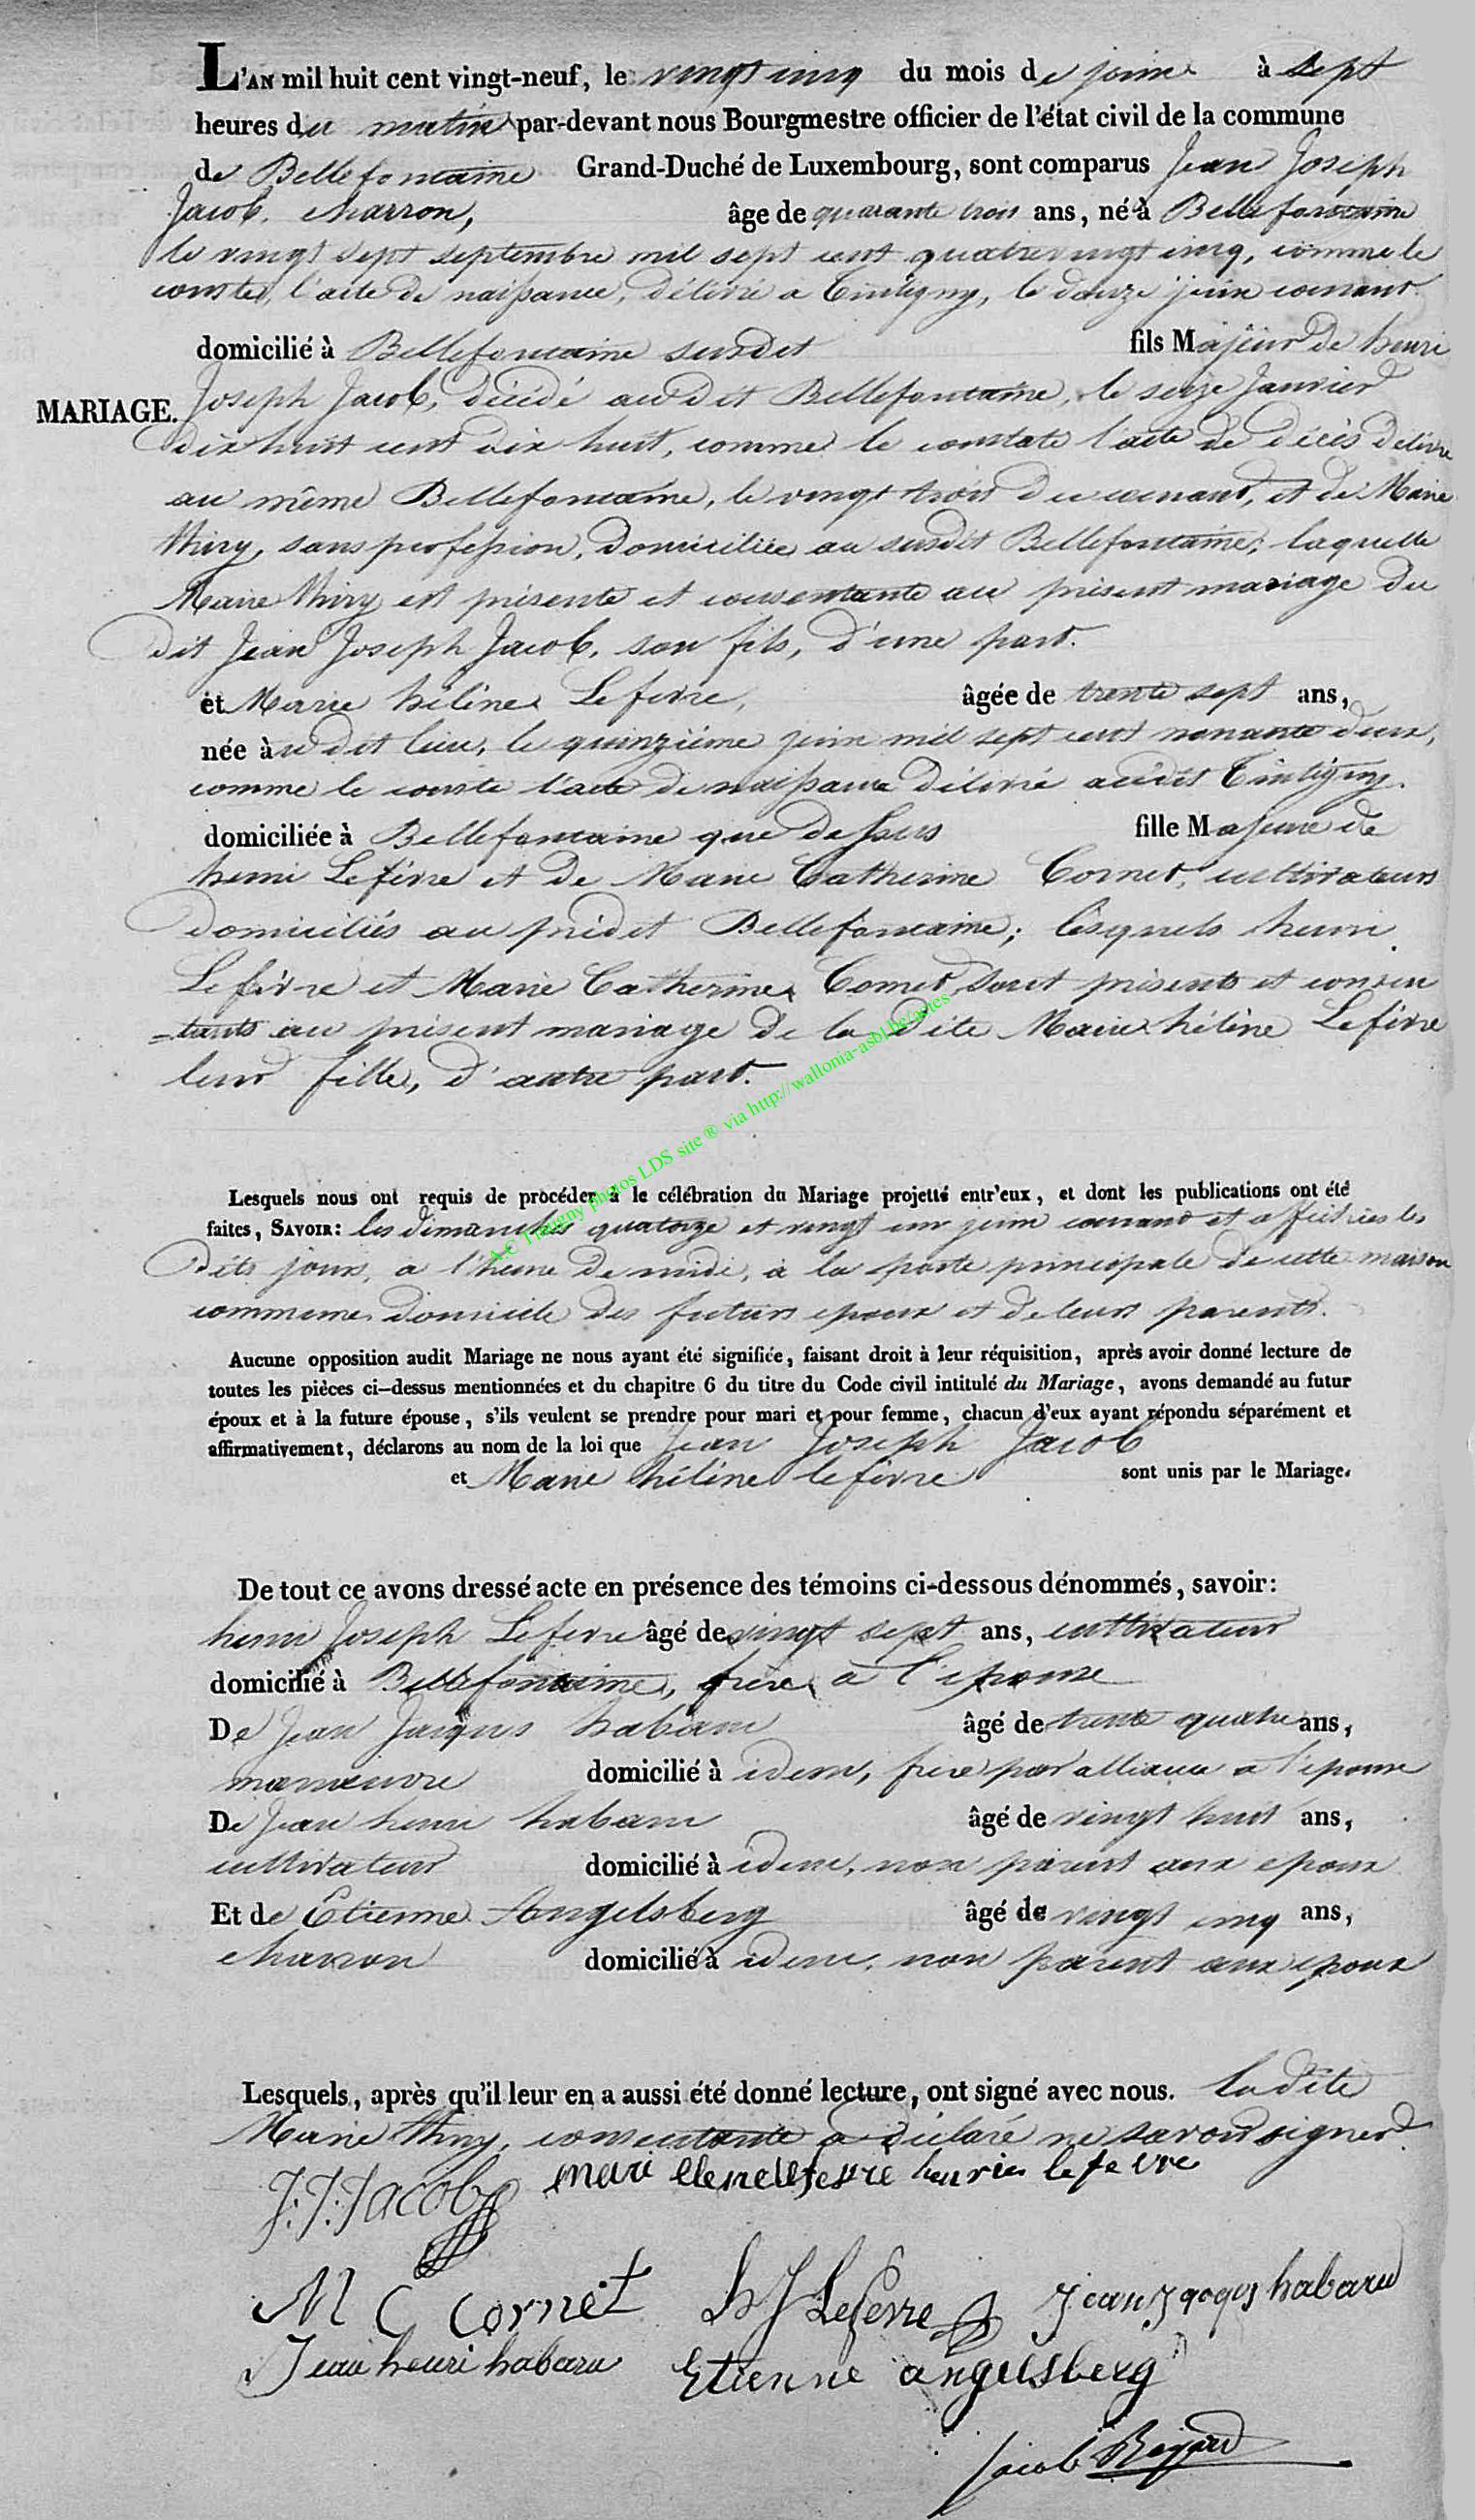 L'AN mil huit cent vingt-neuf, le vingt cinq du mois de juin à sept
heures du matin par-devant nous Bourgmestre officier de l'état civil de la commune
de Bellefontaine Grand-Duché de Luxembourg, sont comparus Jean Joseph
Jacob, charron, âge de quarante trois ans, né à Bellefontaine
le vingt sept septembre mil sept cent quatrevingt cinq, comme le
conste, l'acte de naissance, délivré a Tintigny, le douze juin courant
domicilié à Bellefontaine susdit fils Majeur de henri
MARIAGE.
Joseph Jacob, décédé audit Bellefontaine, le seize Janvier
dix huit cent dix huit, comme le constate l'acte de décès délivré
au même Bellefontaine, le vingt trois du courant, et de Marie
thiry, sans profession, domiciliée au susdit Bellefontaine; laquelle
Marie thiry est présente et consentante au présent mariage du
dit Jean Joseph Jacob, son fils, d'une part.
et Marie hélène Lefèvre, âgée de trente sept ans,
née à u dit lieu, le quinzième juin mil sept cent nonante deux,
comme le conste l'acte de naissance délivré audit Tintigny.
domiciliée à Bellefontaine que dessus fille Majeure de
henri Lefèvre et de Marie Catherine Cornet, cultivateurs
domiciliés au prédit Bellefontaine; lesquels henri
Lefèvre et Marie Catherine Cornet, sont présents et consen
=tants au présent mariage de la dite Marie hélène Lefèvre
leur fille, d'autre part.
A-C Tintigny photos LDS site ® via http://wallonia-asbl.be/actes
Lesquels nous ont requis de procéder à le célébration du Mariage projetté entr'eux, et dont les publications ont été
faites, SAVOIR: les dimanches quatorze et vingt un juin courant et affichées les
dits jours, a l'heure de midi, à la porte principale de cette maison
commune, domicile des futurs epoux et de leurs parents.
Aucune opposition audit Mariage ne nous ayant été signifiée, faisant droit à leur réquisition, après avoir donné lecture de
toutes les pièces ci-dessus mentionnées et du chapitre 6 du titre du Code civil intitulé du Mariage, avons demandé au futur
époux et à la future épouse, s'ils veulent se prendre pour mari et pour femme, chacun d'eux ayant répondu séparément et
affirmativement, déclarons au nom de la loi que Jean Joseph Jacob
et Marie hélène lefèvre sont unis par le Mariage.
De tout ce avons dressé acte en présence des témoins ci-dessous dénommés, savoir:
henri Joseph Lefevre âgé de vingt sept ans, cultivateur
domicilié à Bellefontaine, frère a l'épouse
De Jean Jacques habaru âgé de trente quatre ans,
manœuvre domicilié à idem, frère par alliance a l'épouse
De Jean henri habaru âgé de vingt huit ans,
cultivateur domicilié à idem, non parent aux epoux
Et de Etienne Angelsberg âgé de vingt cinq ans,
charron domicilié à idem, non parent aux epoux
Lesquels, après qu'il leur en a aussi été donné lecture, ont signé avec nous. ladite
Marie thiry, consentante a déclaré ne savoir signer
J: J: Jacob mari elene lefevre henri lefevre
M C Cornet h J Lefevre Jean Jaqques habaru
Jean henri habaru Etienne angelsberg
Jacob